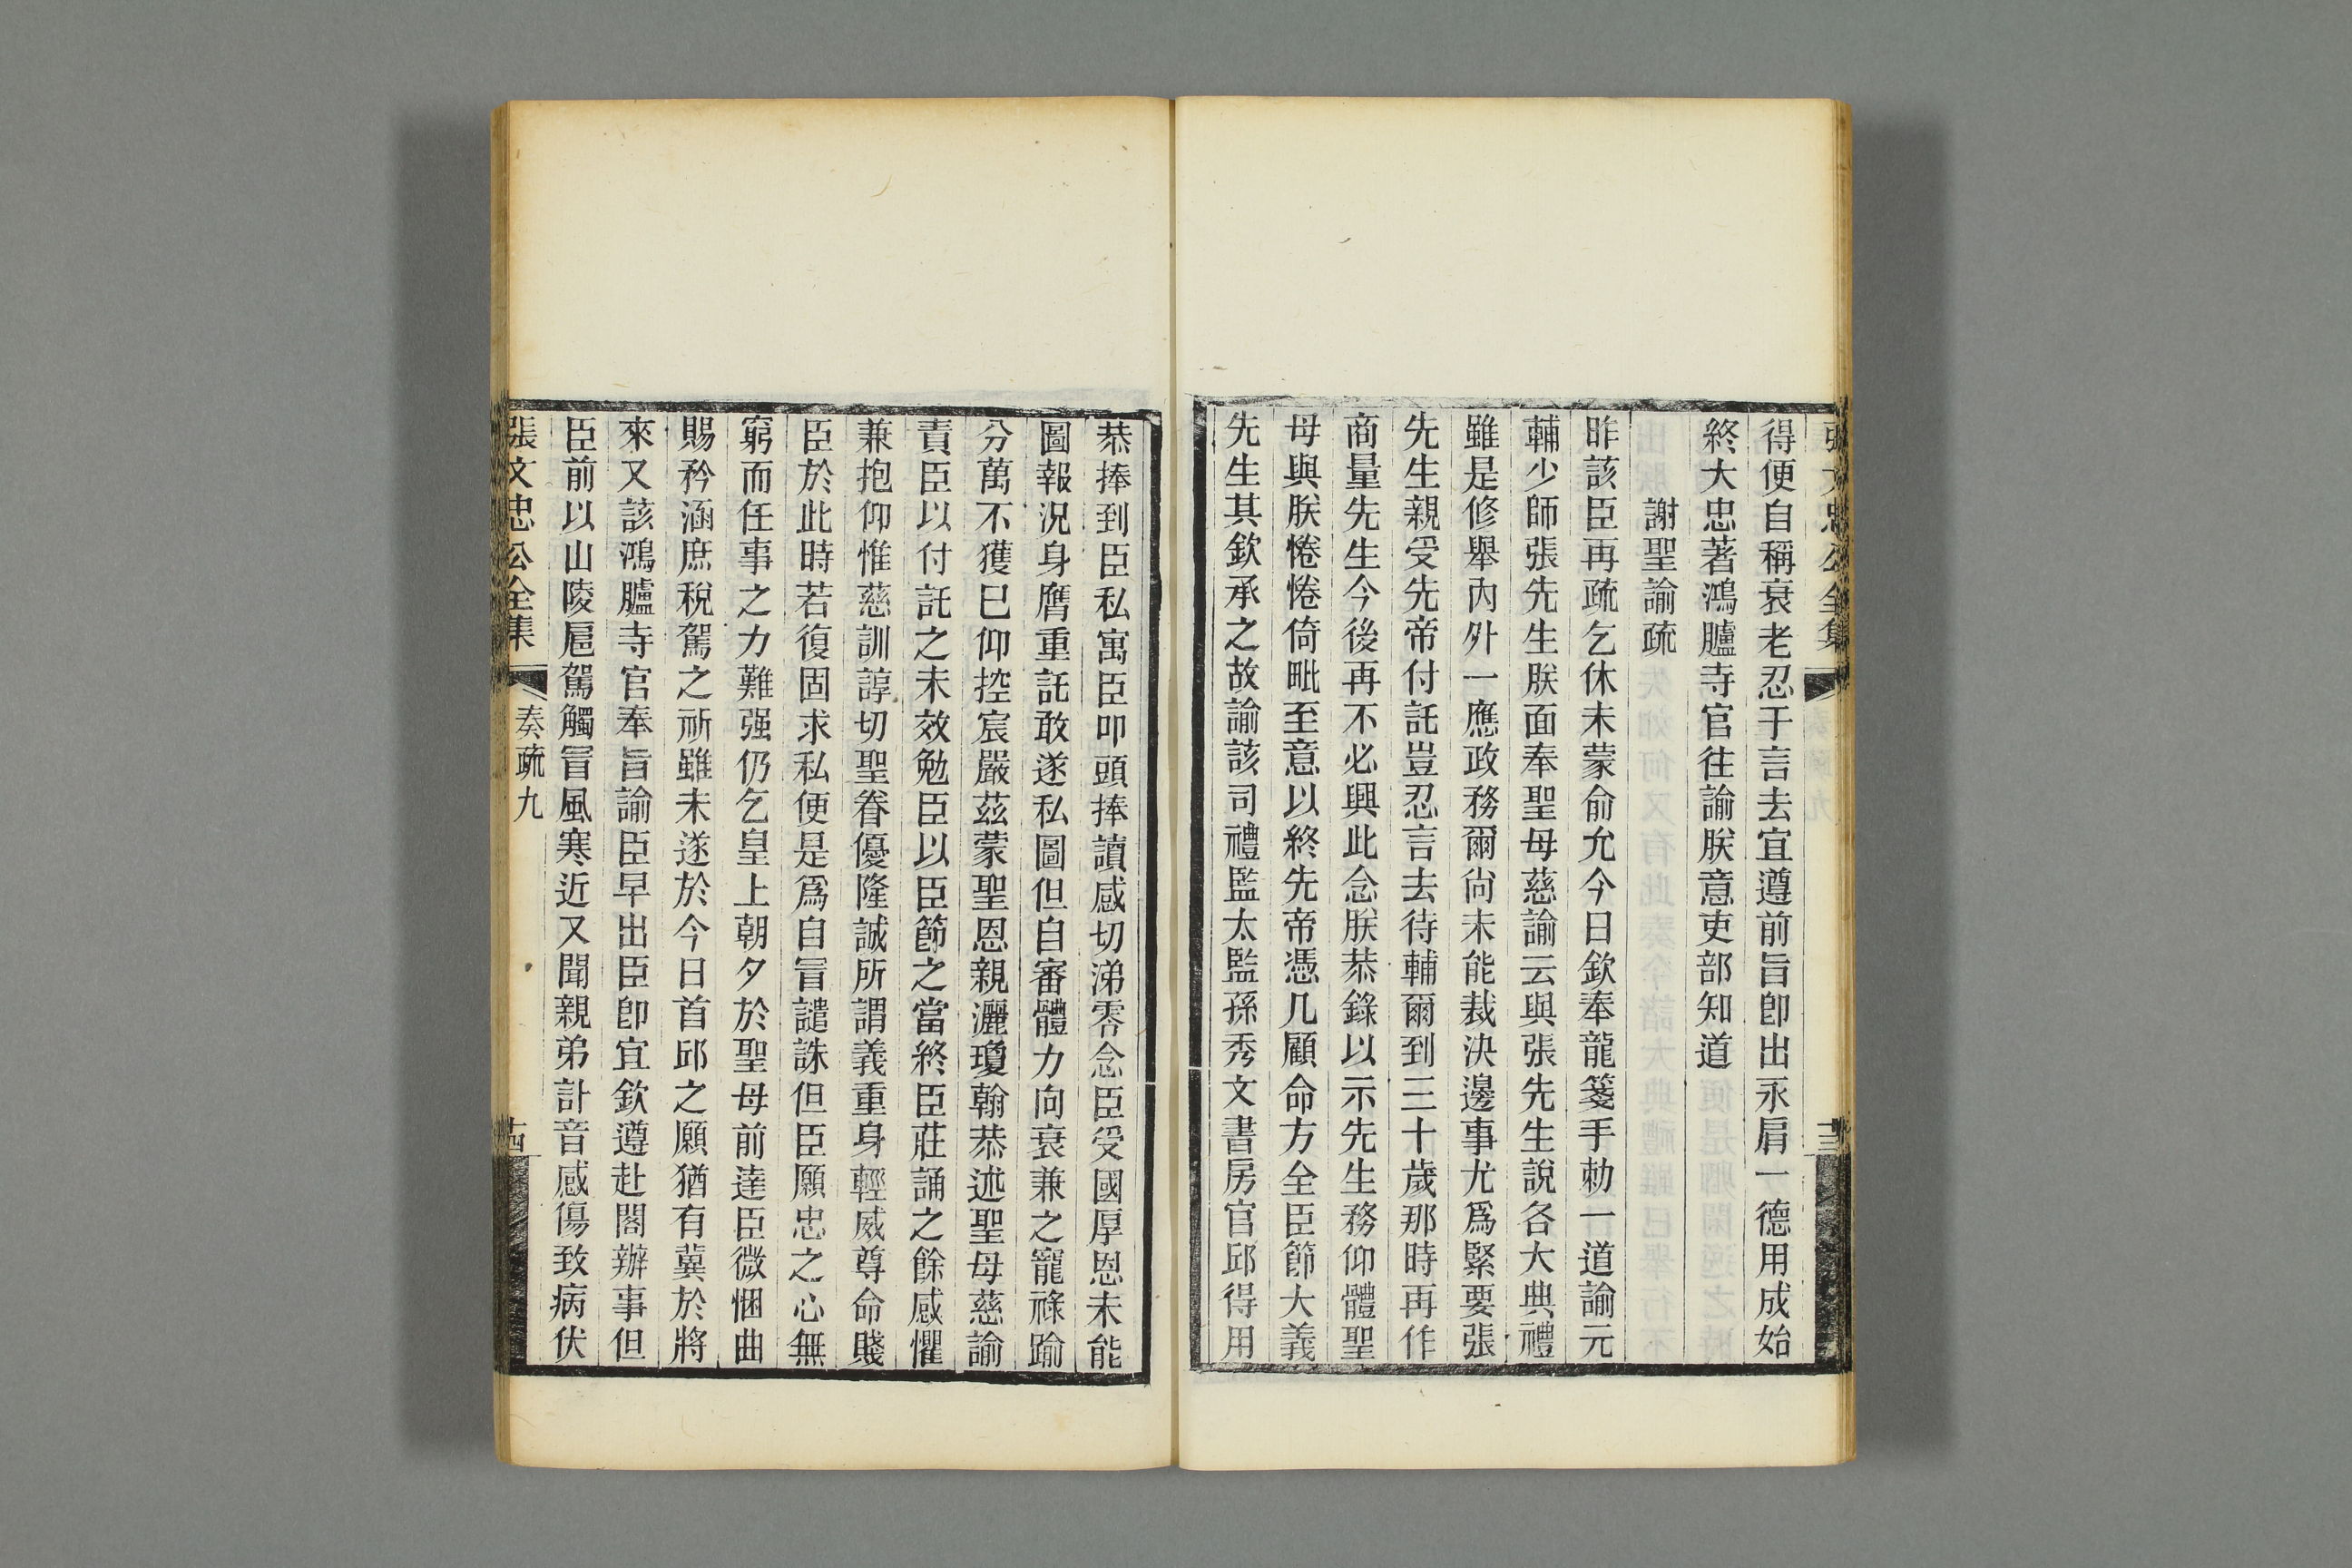 張文忠公全集
得便自稱衰老忍于言去宜遵前旨卽出永肩一德用成始
終大忠著鴻臚寺官往諭朕意吏部知道
謝聖諭疏
昨該臣再疏乞休未蒙俞允今日欽奉龍箋手勅一道諭元
輔少師張先生朕面奉聖母慈諭云與張先生說各大典禮
雖是修舉內外一應政務爾尙未能裁決邊事尤爲緊要張
先生親受先帝付託豈忍言去待輔爾到三十歲那時再作
商量先生今後再不必興此念朕恭錄以示先生務仰體聖
母與朕惓惓倚毗至意以終先帝憑几顧命方全臣節大義
先生其欽承之故諭該司禮監太監孫秀文書房官邱得用
恭捧到臣私寓臣叩頭捧讀感切涕零念臣受國厚恩未能
圖報況身膺重託敢遂私圖但自審體力向衰兼之寵祿踰
分萬不獲已仰控宸嚴茲蒙聖恩親灑瓊翰恭述聖母慈諭
責臣以付託之未效勉臣以臣節之當終臣莊誦之餘感懼
兼抱仰惟慈訓諄切聖眷優隆誠所謂義重身輕威尊命賤
臣於此時若復固求私便是爲自冒譴誅但臣願忠之心無
窮而任事之力難强仍乞皇上朝夕於聖母前達臣微悃曲
賜矜涵庶稅駕之祈雖未遂於今日首邱之願猶有冀於將
來又該鴻臚寺官奉旨諭臣早出臣卽宜欽遵赴閣辦事但
臣前以山陵扈駕觸冒風寒近又聞親弟訃音感傷致病伏
張文忠公全集 奏疏九 十四